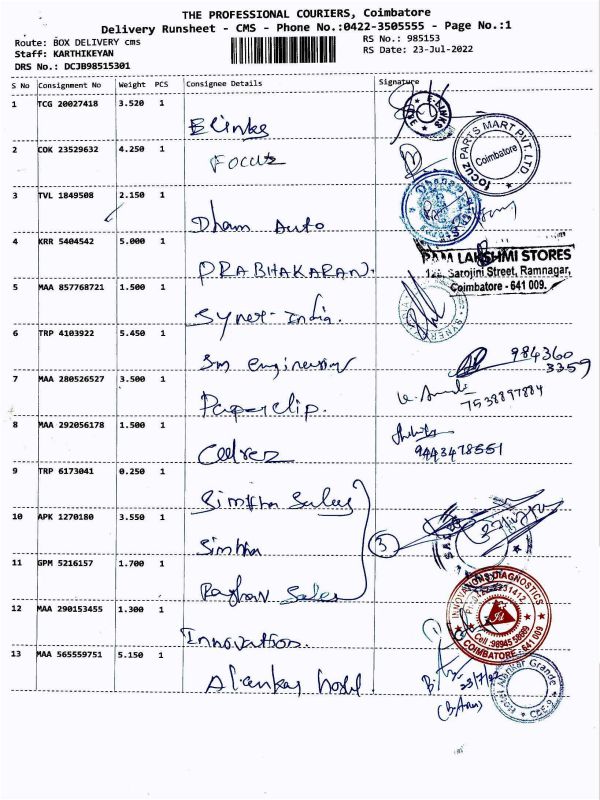 THE PROFESSIONAL COURIERS, Coimbatore
Delivery Runsheet - CMS - Phone No.:0422-3505555 - Page No.:1
Route: BOX DELIVERY cms
RS No.: 985153
Staff: KARTHIKEYAN
RS Date: 23-Jul-2022
DRS No.: DCJB98515301
S No Consignment No Weight PCS Consignee Details Signature
1 TCG 20027418 3.520 1
Elinks
E-LINKS
2 COK 23529632 4.250 1
Focuz
focuz PARTS MART PVT. LTD
Coimbatore
3 TVL 1849508 2.150 1
Dham Auto
4 KRR 5404542 5.000 1
PRABHAKARAN.
LAKSHMI STORES
Sarojini Street, Ramnagar,
Coimbatore - 641 009.
5 MAA 857768721 1.500 1
Synet-India.
6 TRP 4103922 5.450 1
Sm engineering
984360
3359
7 MAA 280526527 3.500 1
Paperclip.
7538897884
8 MAA 292056178 1.500 1
Cedrez
9443478551
9 TRP 6173041 0.250 1
Simtha Sales
10 APK 1270180 3.550 1
Simtha
3
11 GPM 5216157 1.700 1
Raghav Sales
12 MAA 290153455 1.300 1
Innovation.
INNOVATIONS DIAGNOSTICS
COIMBATORE - 641 009
13 MAA 565559751 5.150 1
Alankar hotel
23/7/22
(B.Arun)
Hotel Alankar Grande
CBE-9